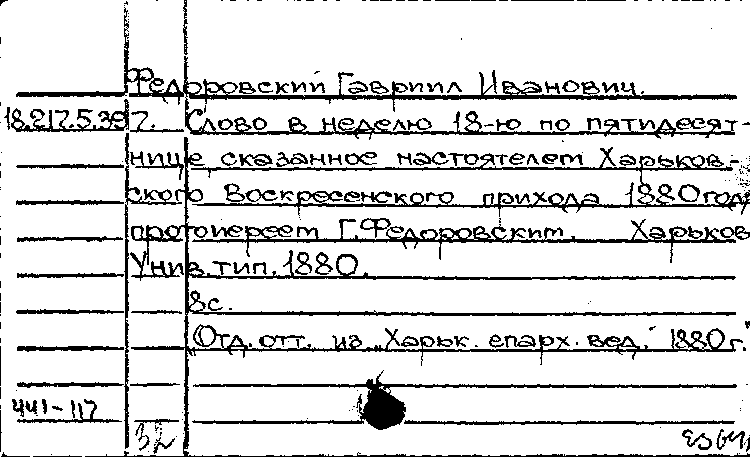 Федоровский Гавриил Иванович.
18.217.5.397. Слово в неделю 18-ю по пятидесят-
нице сказанное настоятелем Харьков-
ского Воскресенского прихода 1880 года
протоиереем Г.Федоровским. Харьков
Унив. тип. 1880.
8 с.
Отд. отт. из „Харьк. епарх. вед." 1880 г."
441-117
32